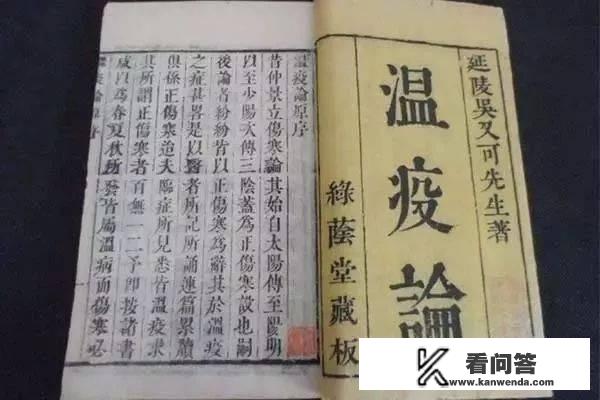 延陵吳又可先生著
温疫論
綠蔭堂藏板
温疫論原序
昔仲景立傷寒論其始自太陽傳至陽明
以至少陽次傳三陰蓋為正傷寒設也嗣
後論者紛紛皆以正傷寒為辭其於温疫
之症甚畧是以醫者所記所誦連篇累牘
俱係正傷寒迨夫臨症所見悉皆温疫求
其所謂正傷寒者百無一二予即按諸書
咸以為春夏秋所發皆屬温病而傷寒必
看问答
www.kanwenda.com